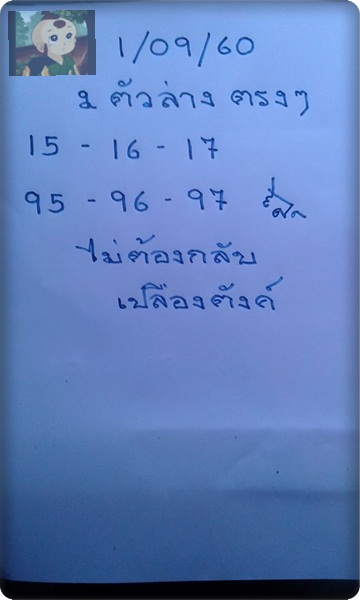 1/09/60
2 ตัวล่าง ตรงๆ
15 - 16 - 17
95 - 96 - 97
ไม่ต้องกลับ
เปลืองตังค์